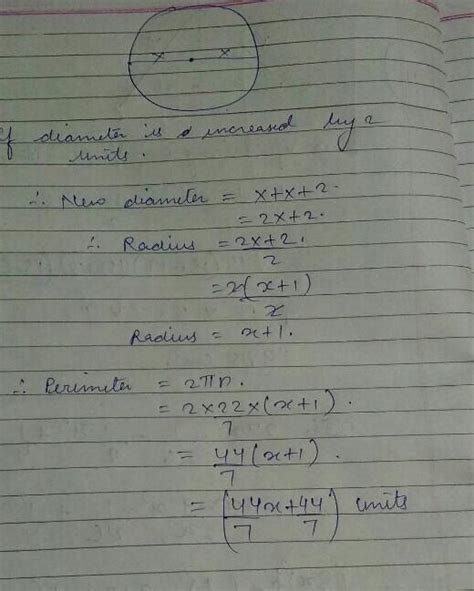 x x
If diameter is increased by 2
units.
∴ New diameter = x+x+2.
= 2x+2.
∴ Radius = 2x+2.
2
= 2(x+1)
2
Radius = x+1.
∴ Perimeter = 2πr.
= 2×22×(x+1).
7
= 44(x+1).
7
= (44x+44) units
7 7